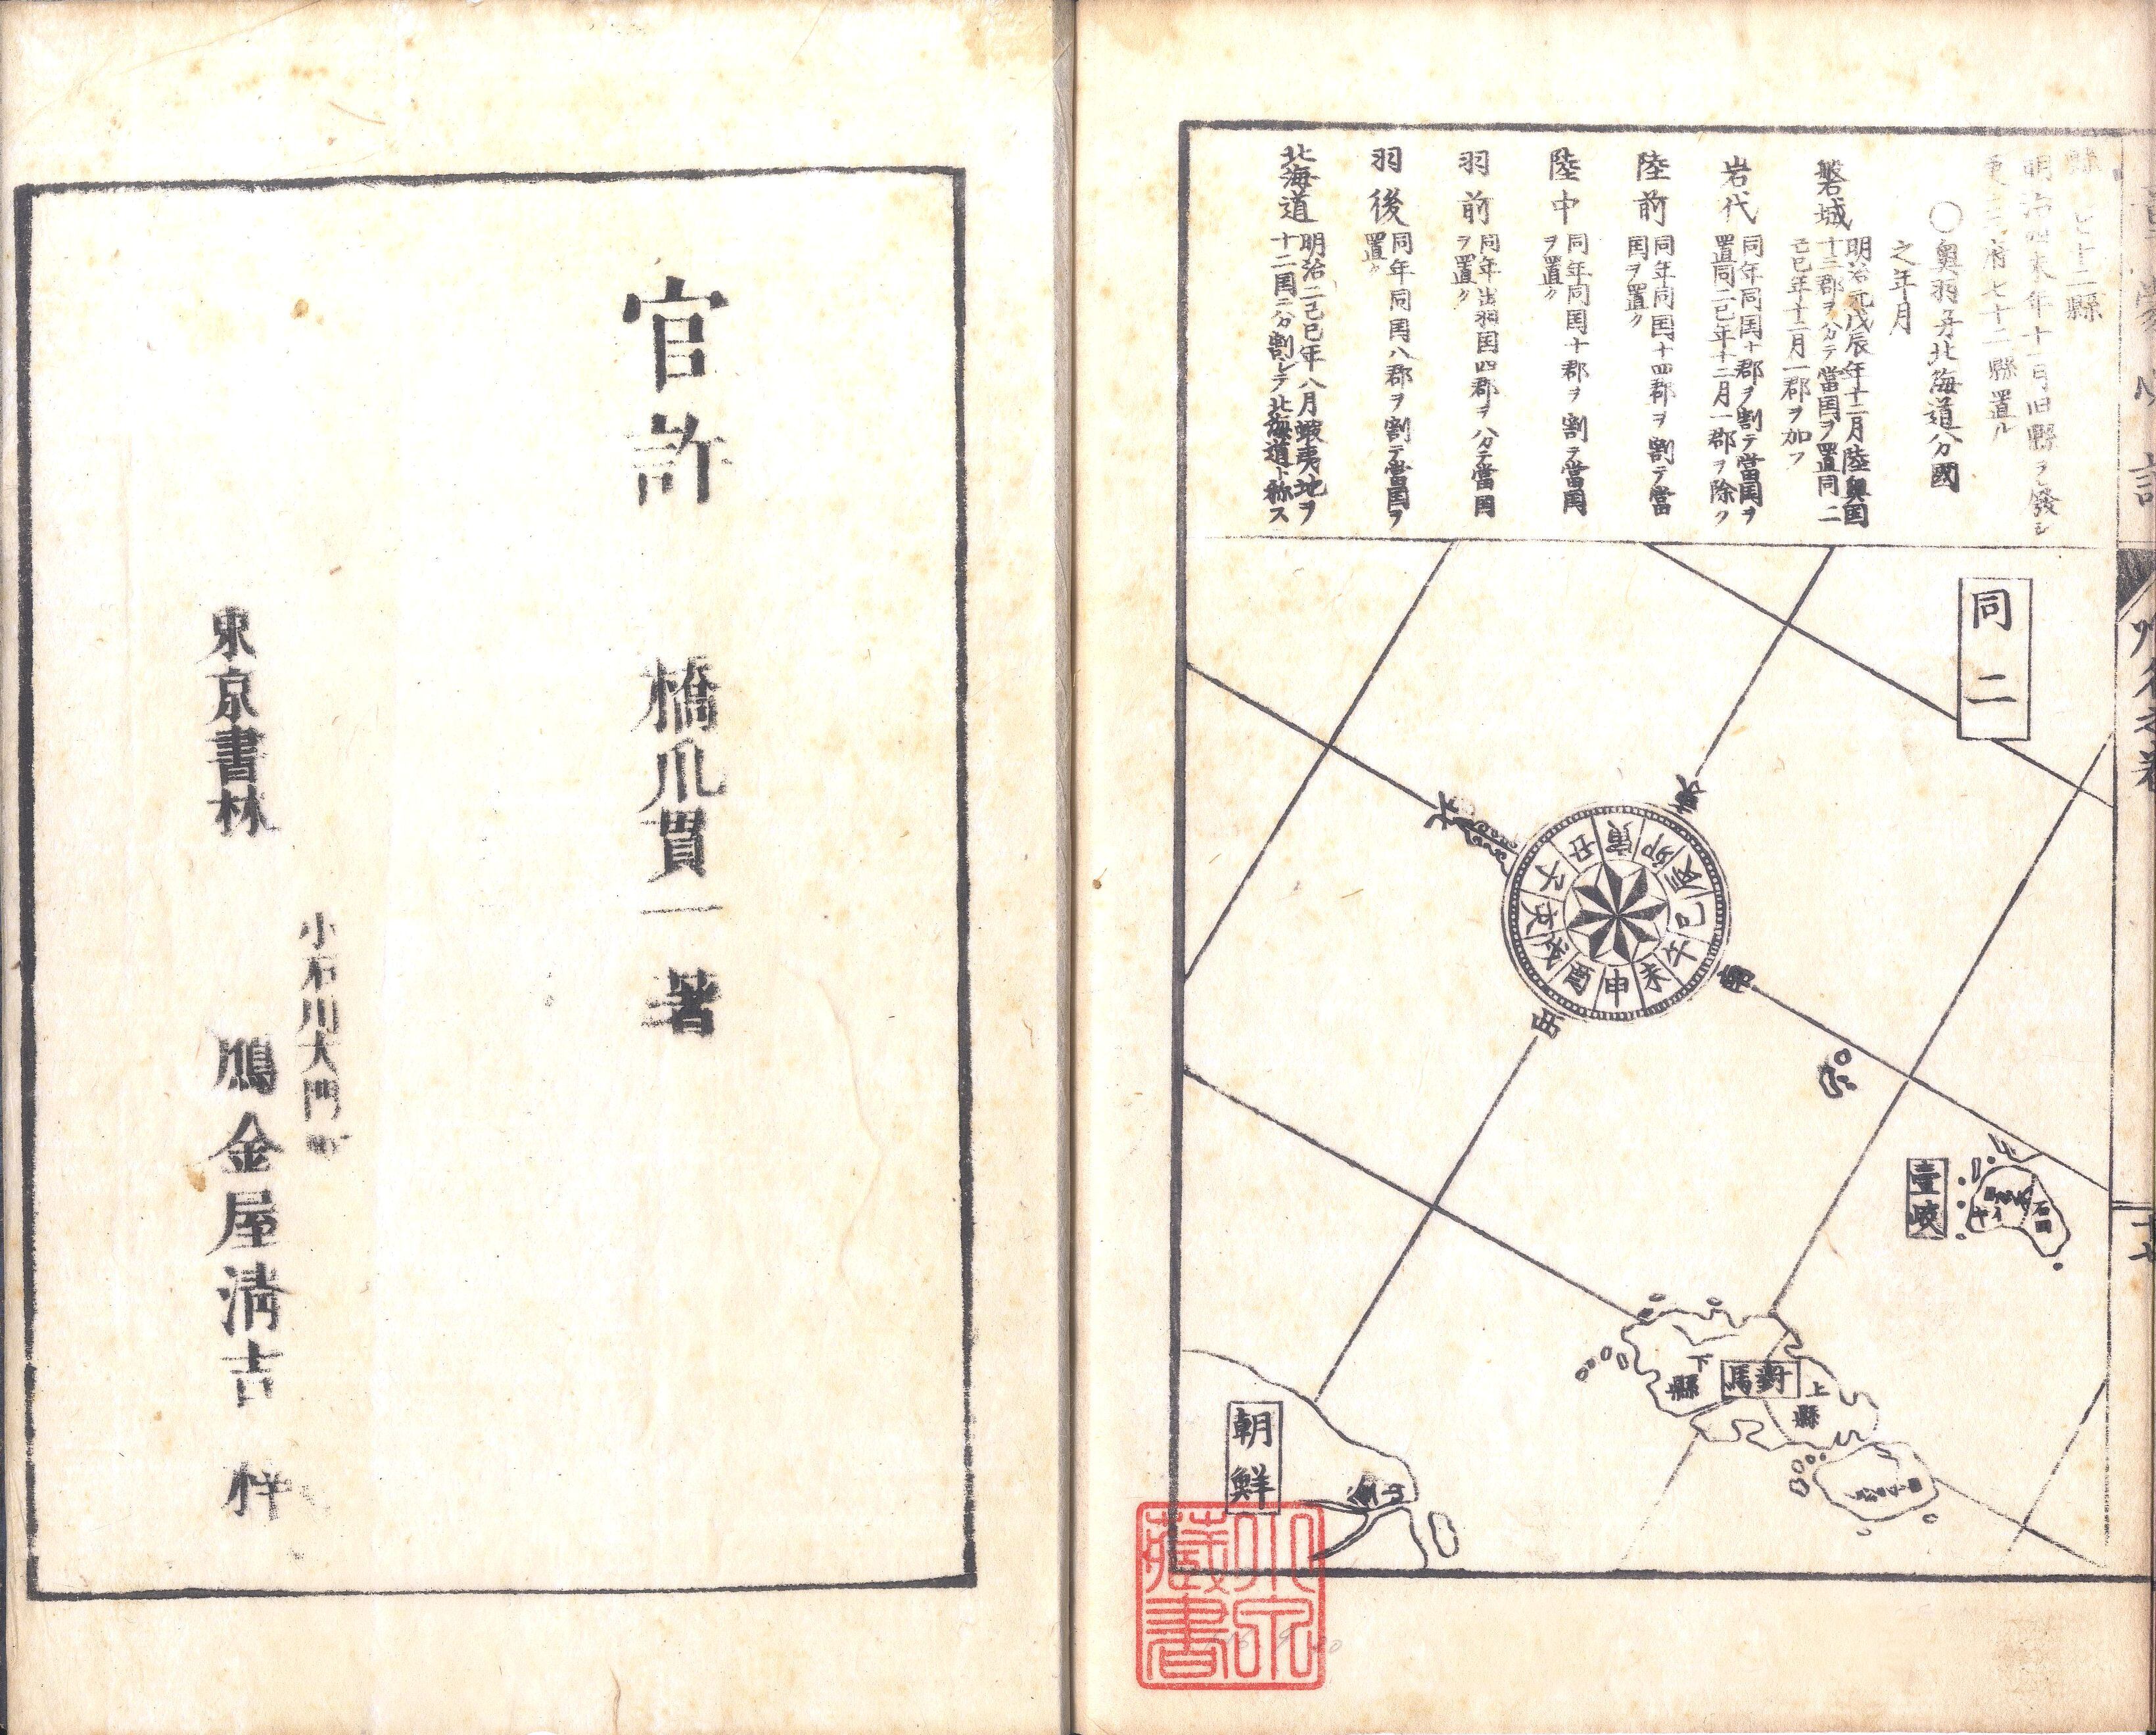 縣 七十二縣
明治四未年十一月旧縣ヲ發シ
更ニ三府七十二縣置ル
〇奧羽并北海道分國
之年月
磐城 明治元戊辰年十二月陸奧国
十三郡ヲ分テ當国ヲ置同二
己巳年十二月一郡ヲ加フ
岩代 同年同国十郡ヲ割テ當国ヲ
置同二巳年十二月一郡ヲ除ク
陸前 同年同国十四郡ヲ割テ當
国ヲ置ク
陸中 同年同国十郡ヲ割テ當国
ヲ置ク
羽前 同年出羽国四郡ヲ分テ當国
ヲ置ク
羽後 同年同国八郡ヲ割テ當国ヲ
置ク
北海道 明治二己巳年八月蝦夷地ヲ
十二国ニ分割シテ北海道ト称ス
同二
東
南
西
北
子
丑
寅
卯
辰
巳
午
未
申
酉
戌
亥
壹岐
石田
對馬
上縣
下縣
朝鮮
小宗藏書
官許 橋爪貫一著
小石川大門町
東京書林 鴈金屋淸吉梓